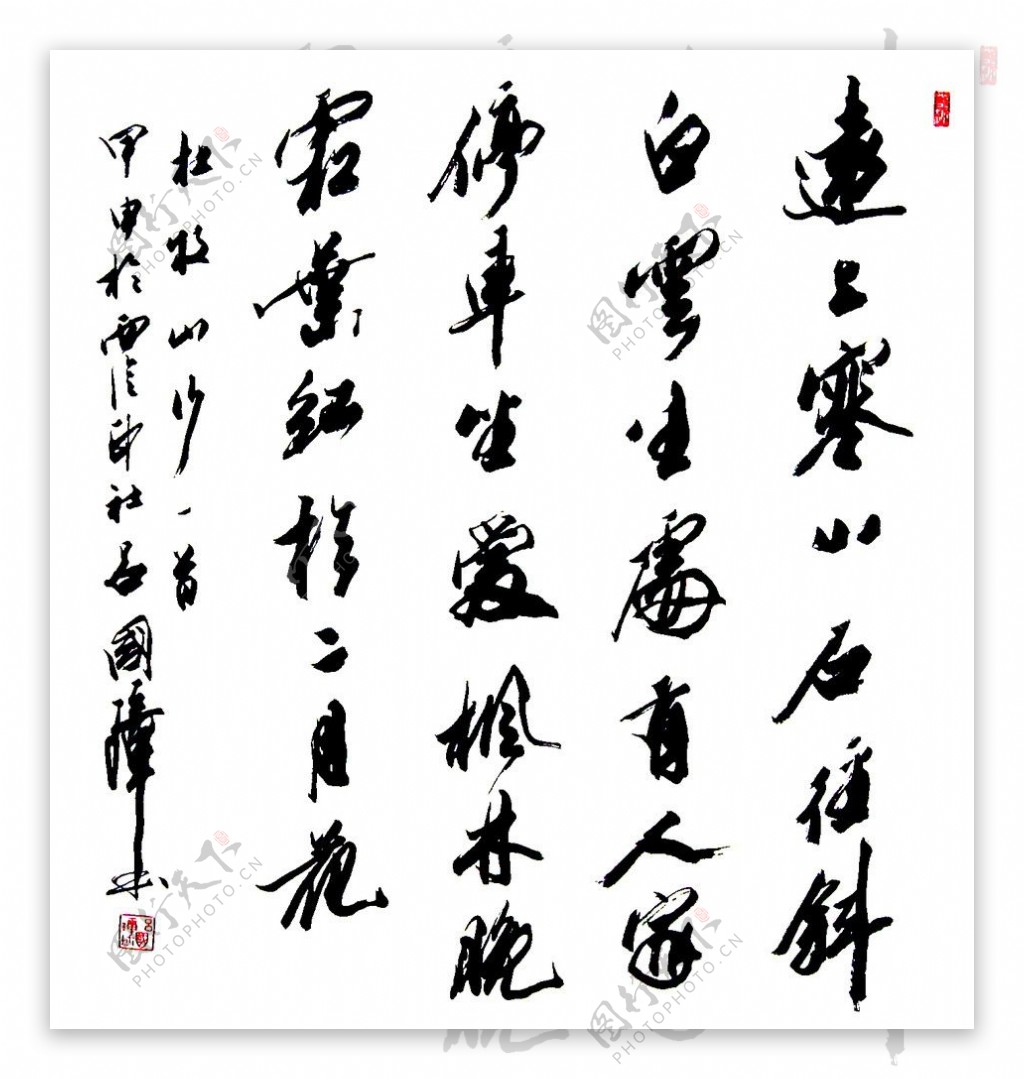 遠上寒山石徑斜
白雲生處有人家
停車坐愛楓林晚
霜葉紅於二月花
杜牧山行一首
甲申於西泠印社呂國璋書
图行天下
PHOTOPHOTO.CN
图行天下
PHOTOPHOTO.CN
图行天下
PHOTOPHOTO.CN
图行天下
PHOTOPHOTO.CN